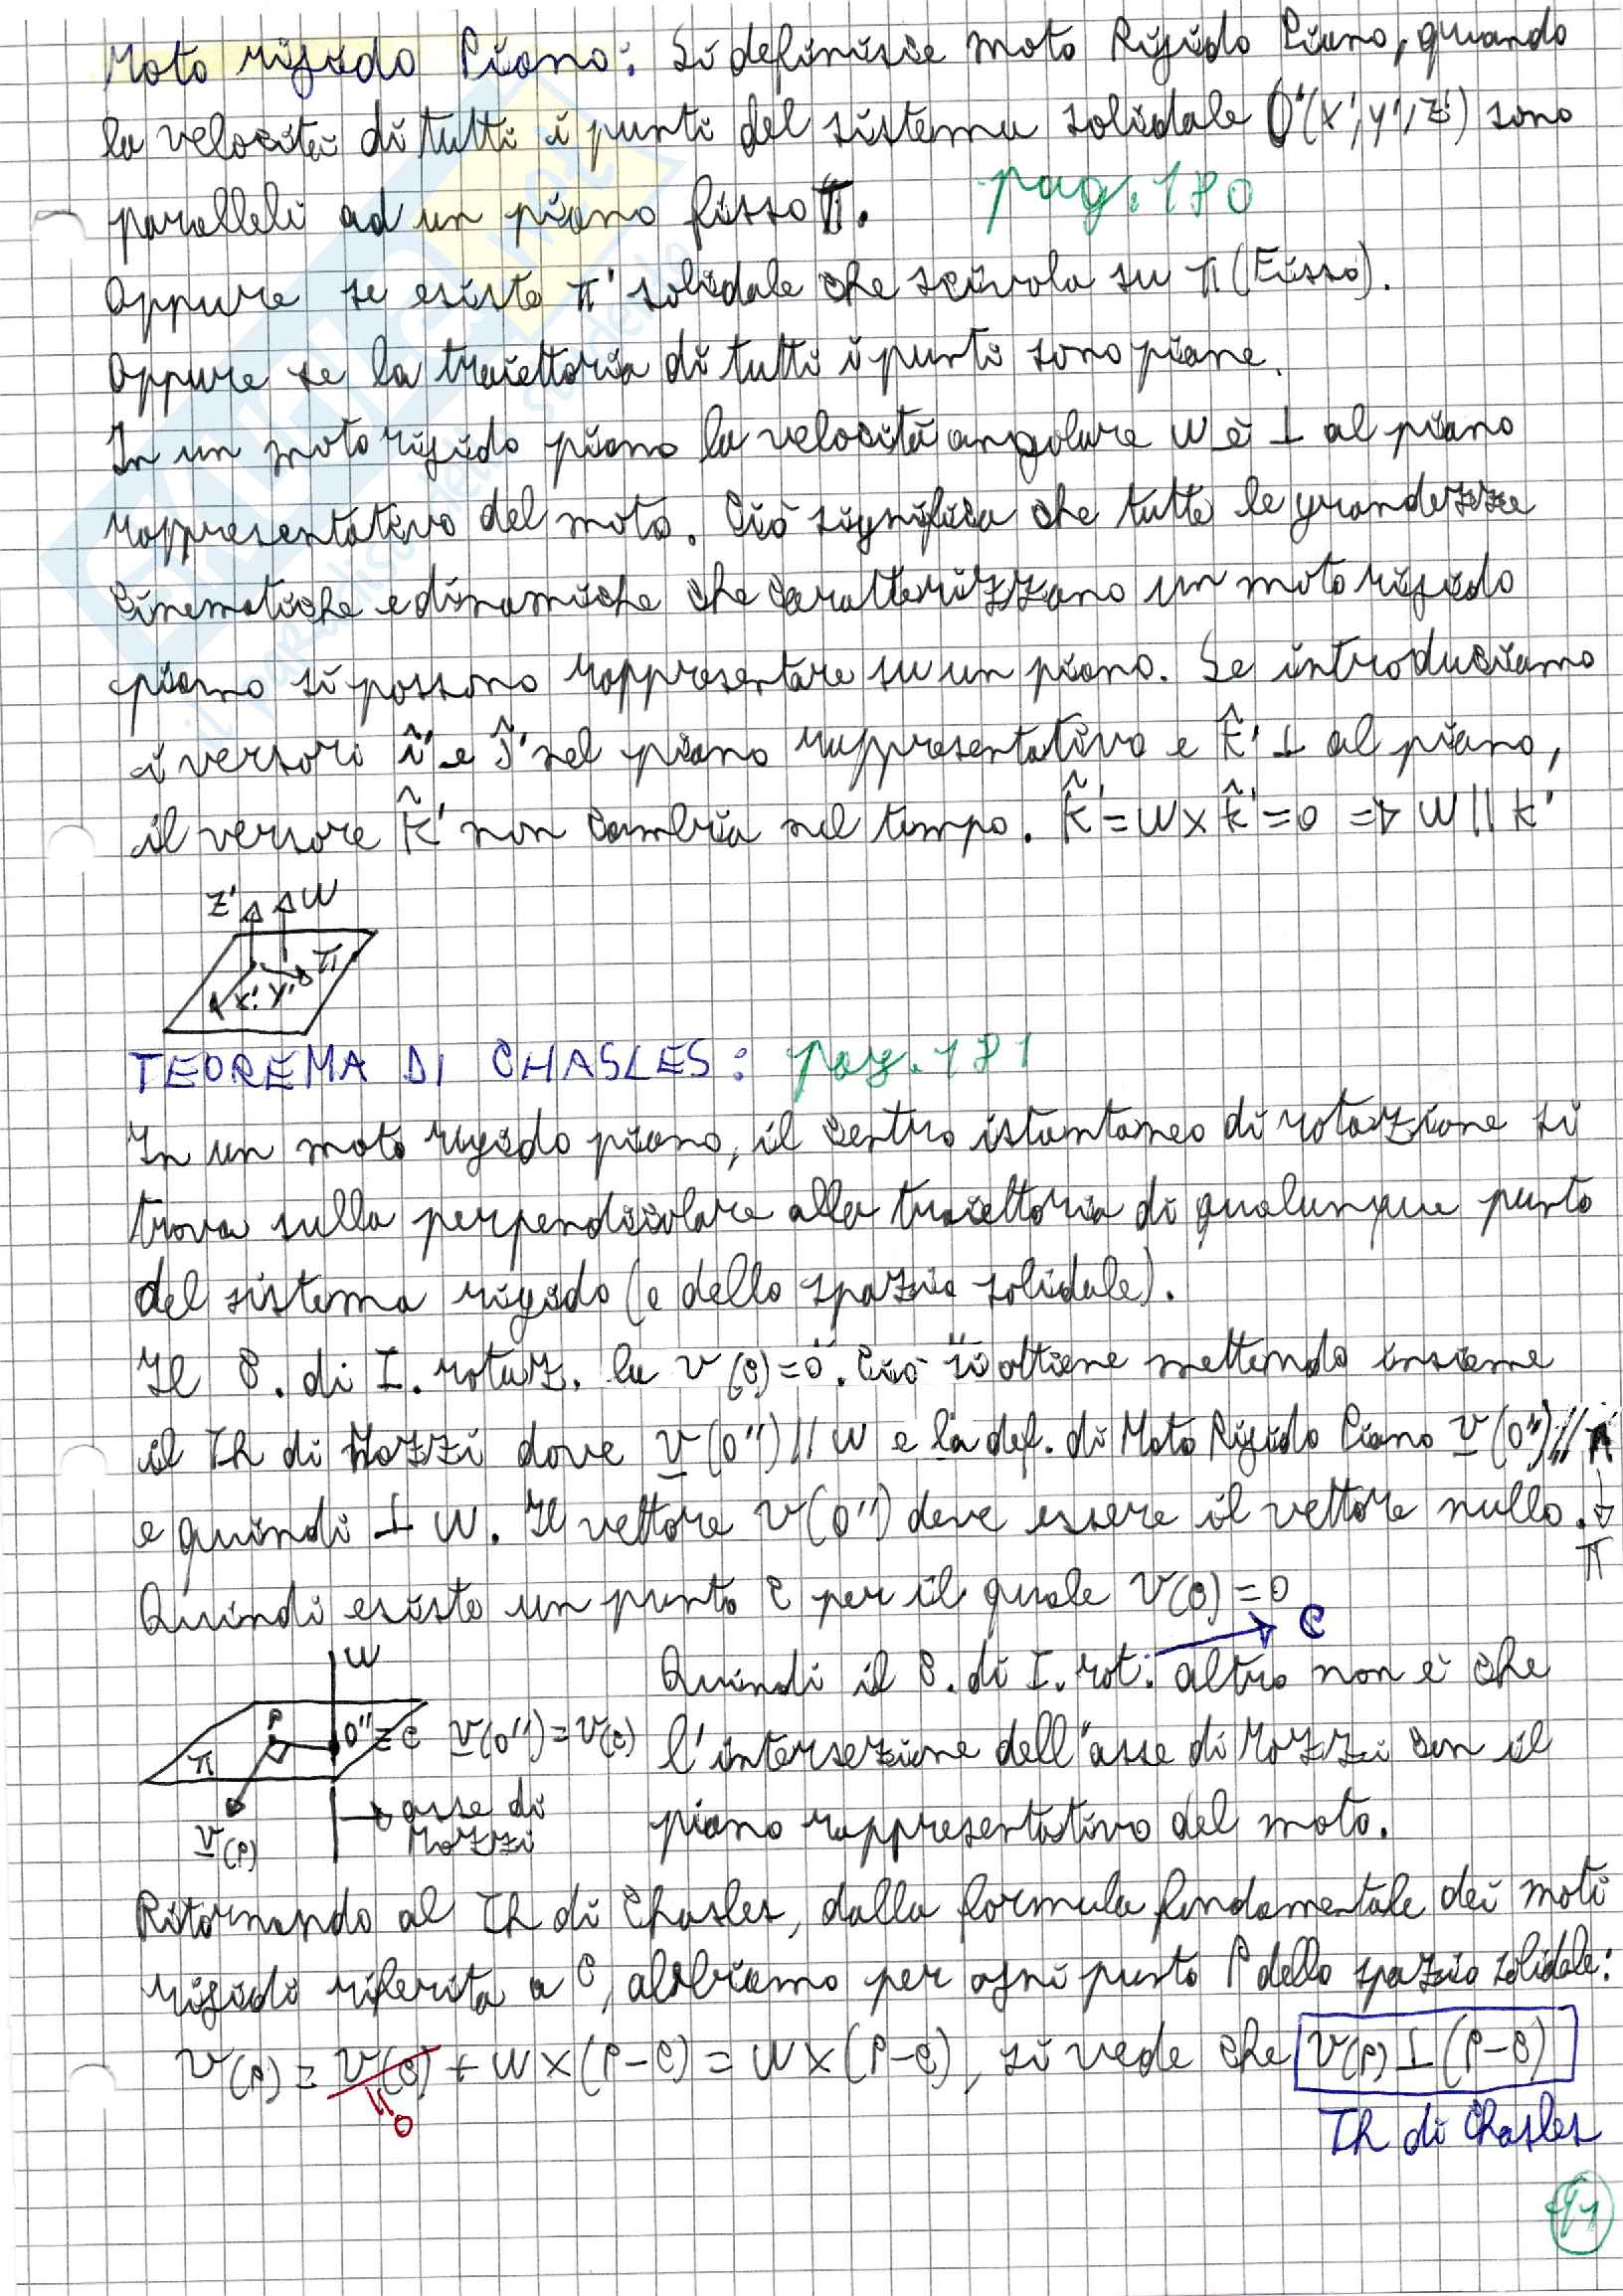 Moto rigido Piano: Si definisce moto Rigido Piano, quando
la velocità di tutti i punti del sistema solidale O'(x',y',z') sono
paralleli ad un piano fisso π. pag. 180
Oppure se esiste π' solidale che scivola su π (Fisso).
Oppure se la traiettoria di tutti i punti sono piane.
In un moto rigido piano la velocità angolare W è ⊥ al piano
rappresentativo del moto. Ciò significa che tutte le grandezze
Cinematiche e dinamiche che caratterizzano un moto rigido
piano si possono rappresentare su un piano. Se introduciamo
i versori î' e ĵ' nel piano rappresentativo e k̂' ⊥ al piano,
il versore k̂' non cambia nel tempo. k̂' = W × k̂' = 0 => W || k'
z' W
π
x' y'
TEOREMA DI CHASLES: pag. 181
In un moto rigido piano, il centro istantaneo di rotazione si
trova sulla perpendicolare alla traiettoria di qualunque punto
del sistema rigido (e dello spazio solidale).
Il C. di I. rotaz. ha v(C)=0. Ciò si ottiene mettendo insieme
il Th di Mozzi dove v(O'') // W e la def. di Moto Rigido Piano v(O'') //
e quindi ⊥ W. Il vettore v(O'') deve essere il vettore nullo. π
Quindi esiste un punto C per il quale v(C) = 0
Quindi il C. di I. rot. altro non è che → C
l'intersezione dell'asse di Mozzi con il
piano rappresentativo del moto.
W
P O''≡C v(O'') = v(C)
π
v(P) → asse di
Mozzi
Ritornando al Th di Chasles, dalla formula fondamentale dei moti
rigidi riferita a C, abbiamo per ogni punto P dello spazio solidale:
v(P) = v(C) + W × (P-C) = W × (P-C), si vede che v(P) ⊥ (P-C)
0
Th di Chasles
41